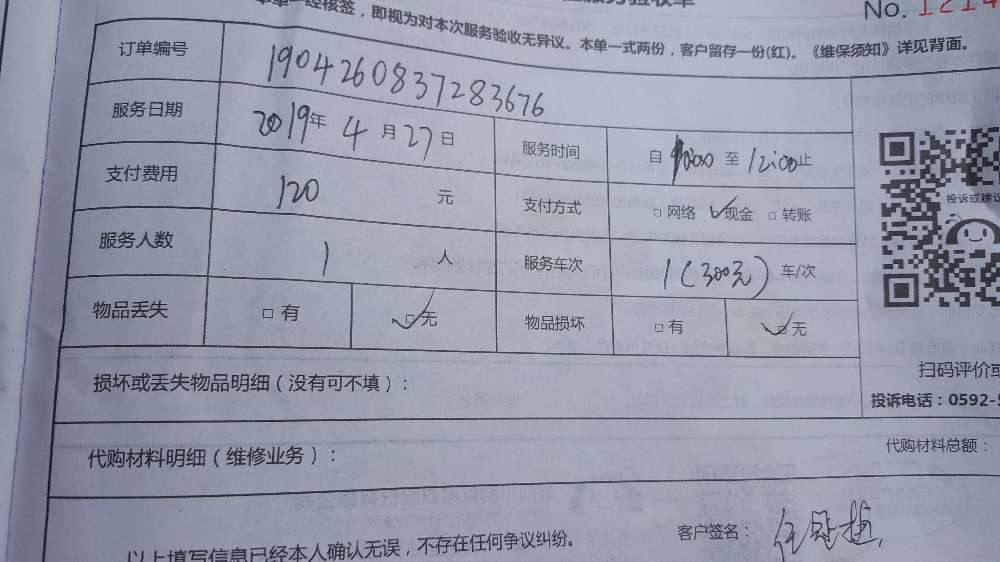 服务验收单
单一经核签，即视为对本次服务验收无异议。本单一式两份，客户留存一份(红)。《维保须知》详见背面。
No. 1214
订单编号 190426083728367​6
服务日期 2019年 4 月 27 日 服务时间 自 10:00 至 12:00 止
支付费用 120 元 支付方式 □网络 ☑现金 □转账
服务人数 1 人 服务车次 1(300元) 车/次
物品丢失 □有 ☑无 物品损坏 □有 ☑无
投诉或建议
损坏或丢失物品明细（没有可不填）：
扫码评价或
投诉电话：0592-5
代购材料明细（维修业务）：
代购材料总额：
客户签名：
以上填写信息已经本人确认无误，不存在任何争议纠纷。